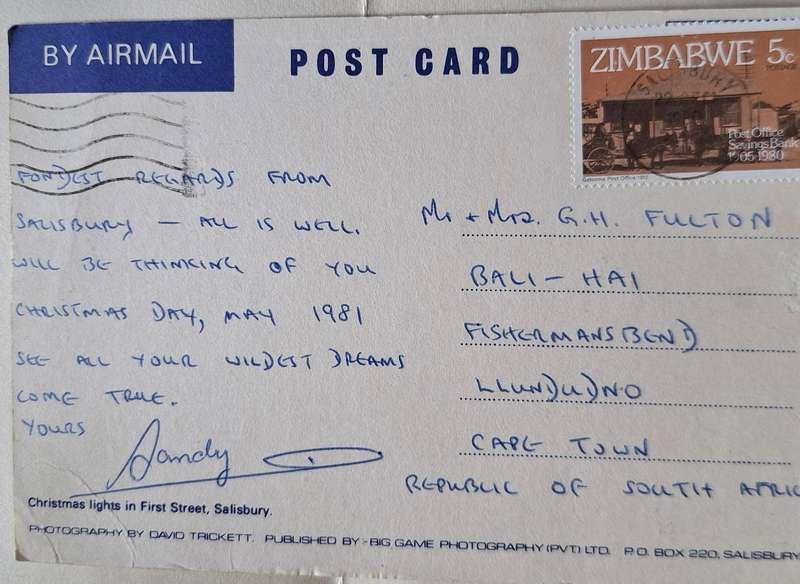 BY AIRMAIL
POST CARD
ZIMBABWE 5c
POSTAGE
SALISBURY
Post Office
Savings Bank
1905-1980
Gatooma Post Office 1912
FONDEST REGARDS FROM
SALISBURY — ALL IS WELL.
WILL BE THINKING OF YOU
CHRISTMAS DAY, MAY 1981
SEE ALL YOUR WILDEST DREAMS
COME TRUE.
YOURS
Sandy
Mr + Mrs. G.H. FULTON
BALI-HAI
FISHERMANSBEND
LLUNDUDNO
CAPE TOWN
REPUBLIC OF SOUTH AFRIC
Christmas lights in First Street, Salisbury.
PHOTOGRAPHY BY DAVID TRICKETT. PUBLISHED BY:- BIG GAME PHOTOGRAPHY (PVT) LTD. P.O. BOX 220, SALISBURY